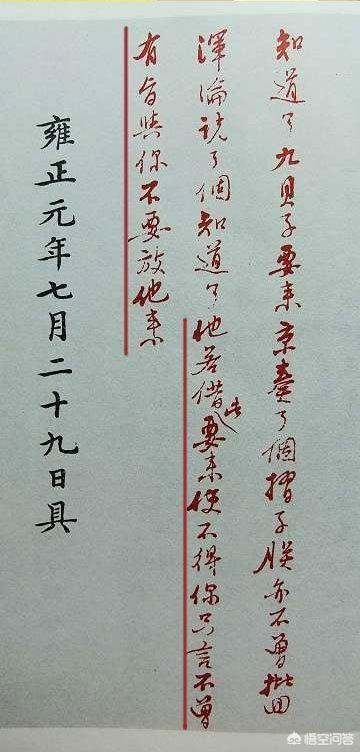 知道了九貝子要来京奏了個摺子朕亦不曾批回
渾淪説了個知道了他若借此要来使不得你只言不曾
有旨與你不要放他来
雍正元年七月二十九日具
悟空问答